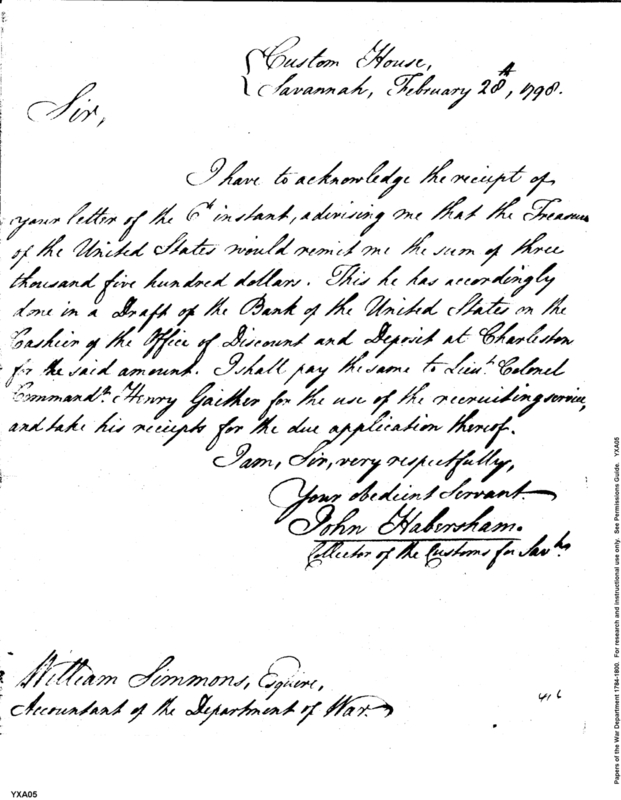 Custom House,
Savannah, February 28th, 1798.
Sir,
I have to acknowledge the receipt of
your letter of the 6th instant, advising me that the Treasurer
of the United States would remit me the sum of three
thousand five hundred dollars. This he has accordingly
done in a Draft of the Bank of the United States on the
Cashier of the Office of Discount and Deposit at Charleston
for the said amount. I shall pay the same to Lieut. Colonel
Commandt. Henry Gaither for the use of the recruiting service,
and take his receipts for the due application thereof.
I am, Sir, very respectfully,
Your obedient Servant
John Habersham.
Collector of the Customs for Savh.
William Simmons, Esquire,
Accountant of the Department of War.
416
YXA05
Papers of the War Department 1784-1800. For research and instructional use only. See Permissions Guide. YXA05